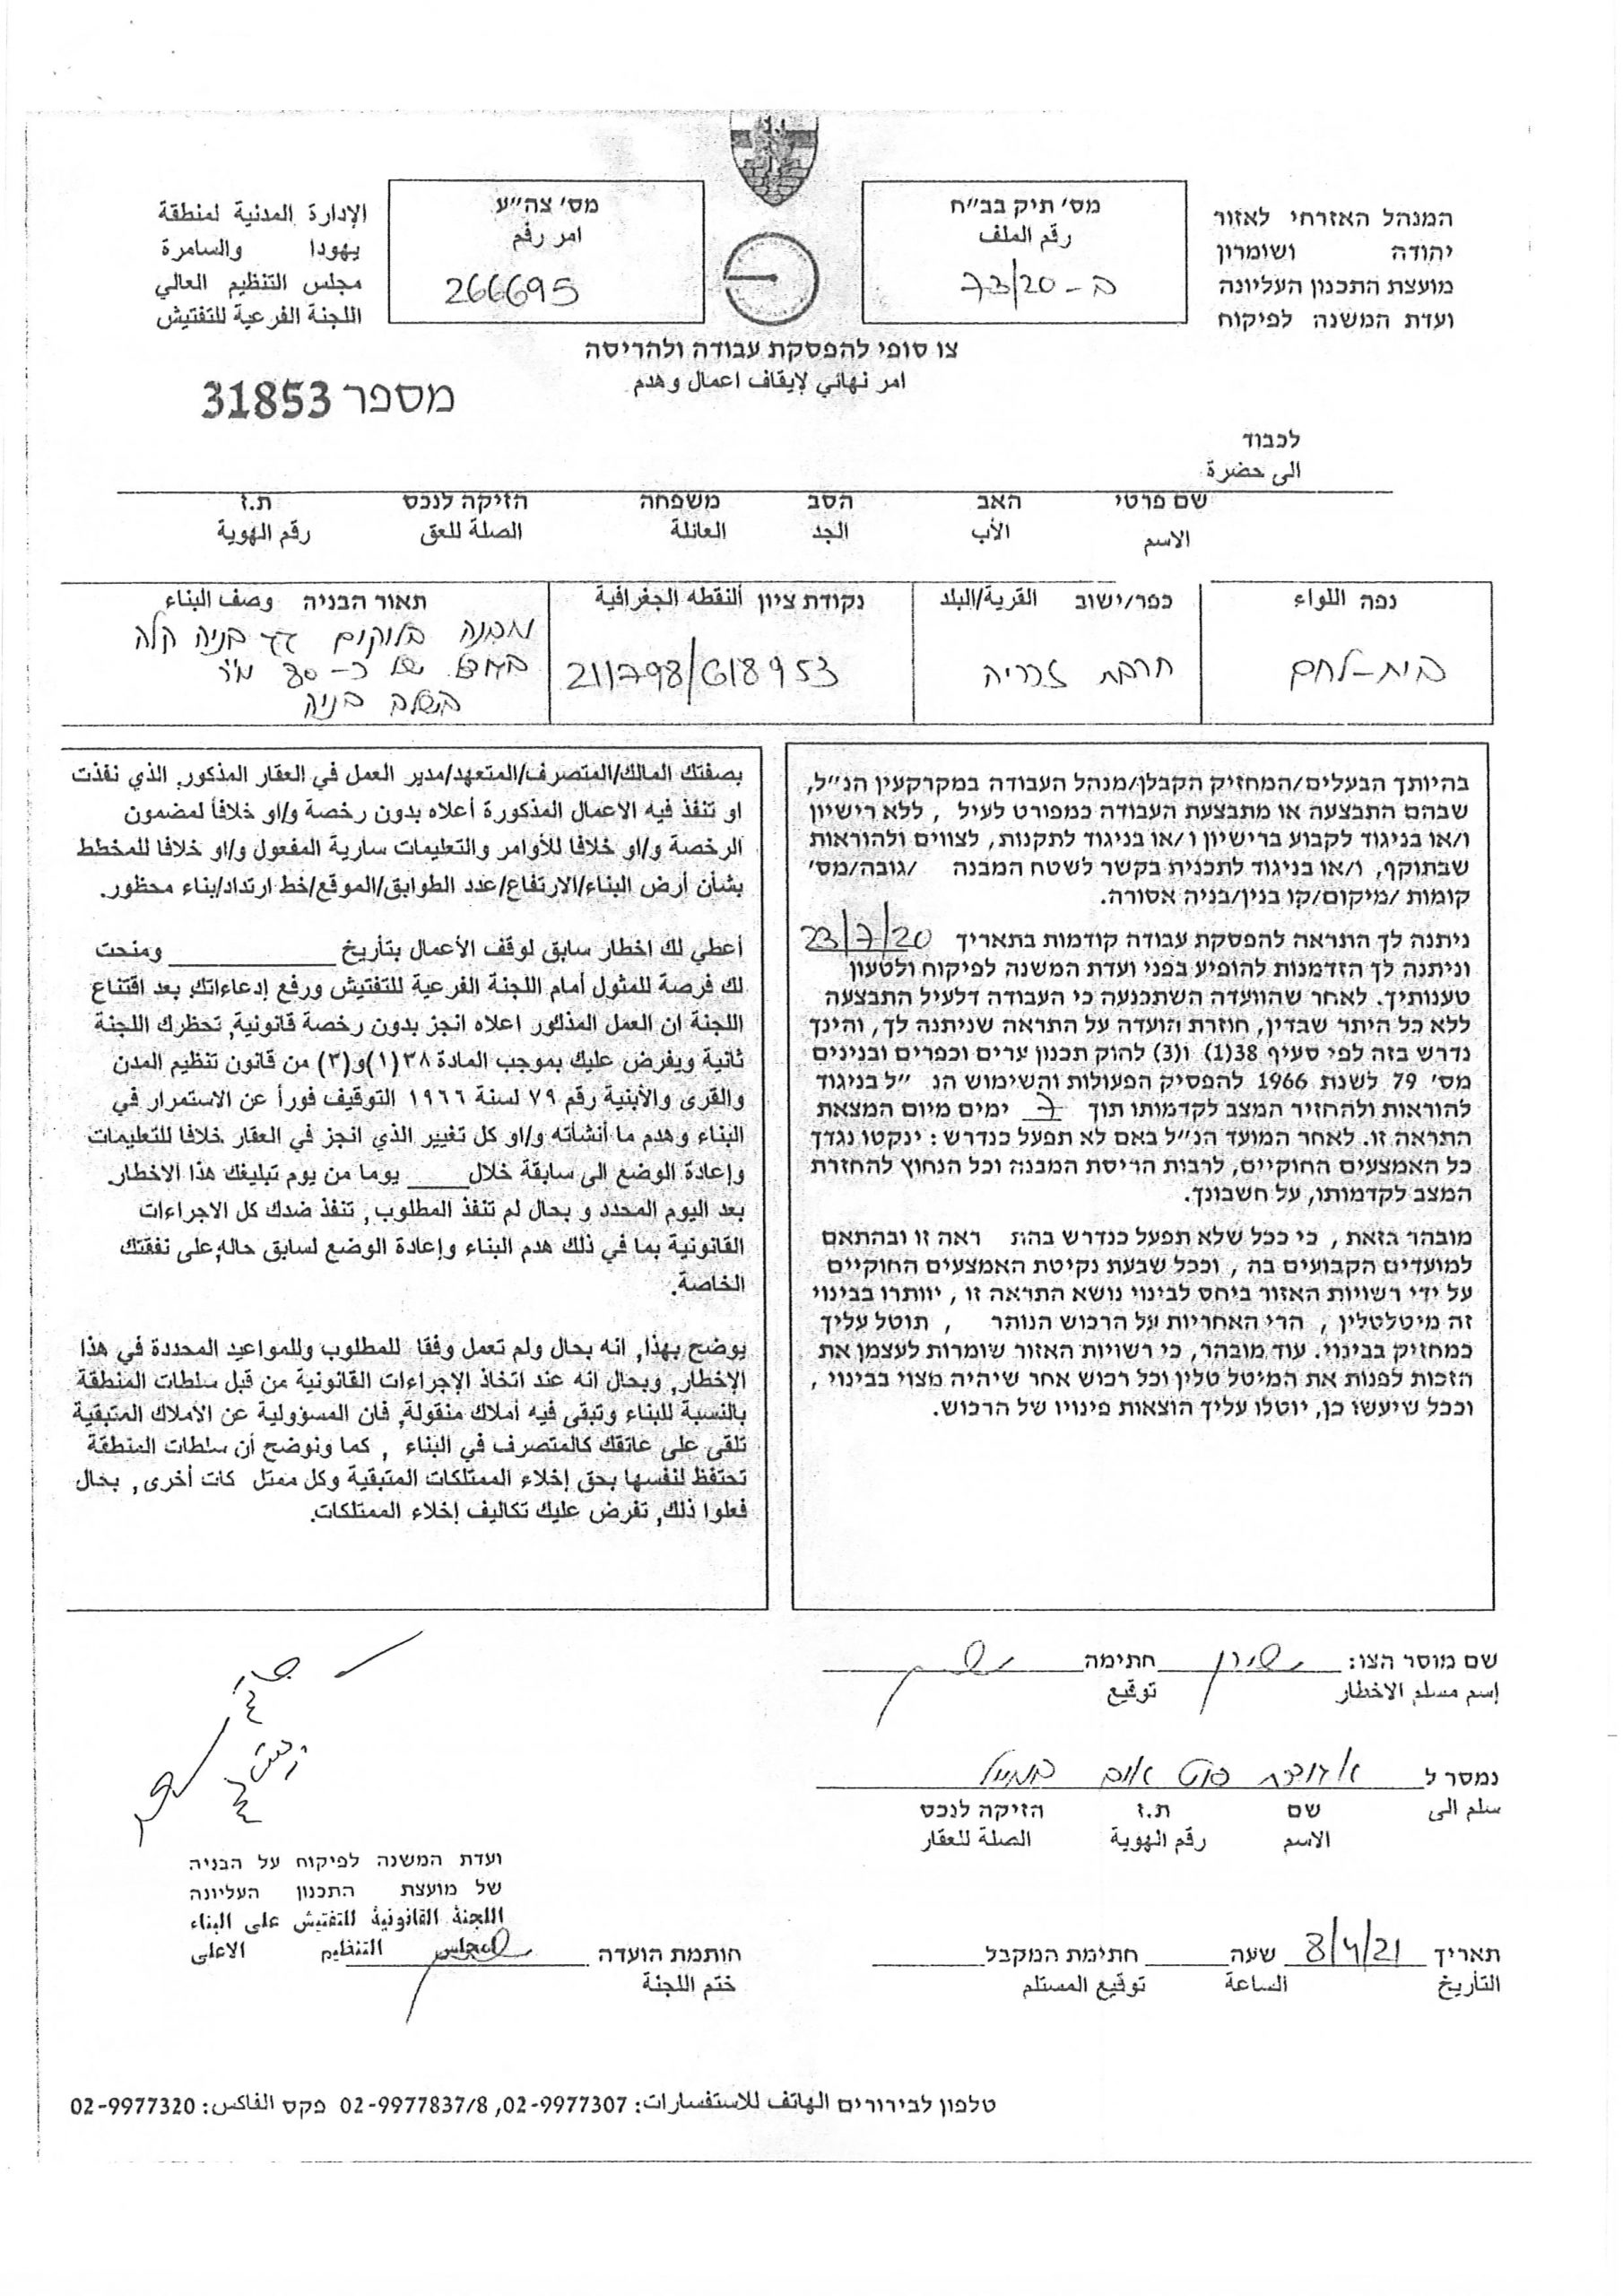 המנהל האזרחי לאזור
יהודה ושומרון
מועצת התכנון העליונה
ועדת המשנה לפיקוח
מס׳ תיק בב״ח
رقم الملف
ב-73/20
מס׳ צה״ע
امر رقم
266695
الإدارة المدنية لمنطقة
يهودا والسامرة
مجلس التنظيم العالي
اللجنة الفرعية للتفتيش
צו סופי להפסקת עבודה ולהריסה
امر نهائي لإيقاف اعمال وهدم
מספר 31853
לכבוד
الى حضرة
שם פרטי האב הסב משפחה הזיקה לנכס ת.ז
الاسم الأب الجد العائلة الصلة للعق رقم الهوية
נפה اللواء
בית-לחם
כפר/ישוב القرية/البلد
חרבת זכריה
נקודת ציון النقطه الجغرافية
211798/618953
תאור הבניה وصف البناء
מבנה בלוקים גג בניה קלה
בגודל של כ-80 מ״ר
בשלב בניה
בהיותך הבעלים/המחזיק הקבלן/מנהל העבודה במקרקעין הנ״ל,
שבהם התבצעה או מתבצעת העבודה כמפורט לעיל , ללא רישיון
ו/או בניגוד לקבוע ברישיון ו/או בניגוד לתקנות, לצווים ולהוראות
שבתוקף, ו/או בניגוד לתכנית בקשר לשטח המבנה /גובה/מס׳
קומות /מיקום/קו בנין/בניה אסורה.
ניתנה לך התראה להפסקת עבודה קודמות בתאריך 23/7/20
וניתנה לך הזדמנות להופיע בפני ועדת המשנה לפיקוח ולטעון
טענותיך. לאחר שהוועדה השתכנעה כי העבודה דלעיל התבצעה
ללא כל היתר שבדין, חוזרת הועדה על התראה שניתנה לך, והינך
נדרש בזה לפי סעיף 38(1) ו(3) להוק תכנון ערים וכפרים ובנינים
מס׳ 79 לשנת 1966 להפסיק הפעולות והשימוש הנ ״ל בניגוד
להוראות ולהחזיר המצב לקדמותו תוך 7 ימים מיום המצאת
התראה זו. לאחר המועד הנ״ל באם לא תפעל כנדרש: ינקטו נגדך
כל האמצעים החוקיים, לרבות הריסת המבנה וכל הנחוץ להחזרת
המצב לקדמותו, על חשבונך.
מובהר בזאת , כי ככל שלא תפעל כנדרש בהת ראה זו ובהתאם
למועדים הקבועים בה , וככל שבעת נקיטת האמצעים החוקיים
על ידי רשויות האזור ביחס לבינוי נושא התראה זו , יוותרו בבינוי
זה מיטלטלין , הרי האחריות על הרכוש הנותר , תוטל עליך
כמחזיק בבינוי. עוד מובהר, כי רשויות האזור שומרות לעצמן את
הזכות לפנות את המיטל טלין וכל רכוש אחר שיהיה מצוי בבינוי ,
וככל שיעשו כן, יוטלו עליך הוצאות פינויו של הרכוש.
بصفتك المالك/المتصرف/المتعهد/مدير العمل في العقار المذكور. الذي نفذت
او تنفذ فيه الاعمال المذكورة أعلاه بدون رخصة و/او خلافاً لمضمون
الرخصة و/او خلافا للأوامر والتعليمات سارية المفعول و/او خلافا للمخطط
بشأن أرض البناء/الارتفاع/عدد الطوابق/الموقع/خط ارتداد/بناء محظور.
أعطي لك اخطار سابق لوقف الأعمال بتأريخ ومنحت
لك فرصة للمثول أمام اللجنة الفرعية للتفتيش ورفع إدعاءاتك. بعد اقتناع
اللجنة ان العمل المذكور اعلاه انجز بدون رخصة قانونية, تحظرك اللجنة
ثانية ويفرض عليك بموجب المادة ٣٨(١)و(٣) من قانون تنظيم المدن
والقرى والأبنية رقم ٧٩ لسنة ١٩٦٦ التوقيف فوراً عن الاستمرار في
البناء وهدم ما أنشأته و/او كل تغيير الذي انجز في العقار خلافا للتعليمات
وإعادة الوضع الى سابقة خلال يوما من يوم تبليغك هذا الاخطار.
بعد اليوم المحدد و بحال لم تنفذ المطلوب, تنفذ ضدك كل الاجراءات
القانونية بما في ذلك هدم البناء وإعادة الوضع لسابق حاله,على نفقتك
الخاصة.
يوضح بهذا, انه بحال ولم تعمل وفقا للمطلوب وللمواعيد المحددة في هذا
الإخطار, وبحال انه عند اتخاذ الإجراءات القانونية من قبل سلطات المنطقة
بالنسبة للبناء وتبقى فيه أملاك منقولة, فان المسؤولية عن الأملاك المتبقية
تلقى على عاتقك كالمتصرف في البناء , كما ونوضح أن سلطات المنطقة
تحتفظ لنفسها بحق إخلاء الممتلكات المتبقية وكل ممتل كات أخرى, بحال
فعلوا ذلك, تفرض عليك تكاليف إخلاء الممتلكات.
שם מוסר הצו: חתימה
إسم مسلم الاخطار توقيع
נמסר ל
سلم الى
שם ת.ז הזיקה לנכס
الاسم رقم الهوية الصلة للعقار
תאריך 8/4/21 שעה חתימת המקבל
التأريخ الساعة توقيع المستلم
ועדת המשנה לפיקוח על הבניה
של מועצת התכנון העליונה
اللجنة القانونية للتفتيش على البناء
لمجلس التنظيم الاعلى
חותמת הועדה
ختم اللجنة
טלפון לבירורים الهاتف للاستفسارات: 02-9977307, 02-9977837/8 פקס الفاكس: 02-9977320